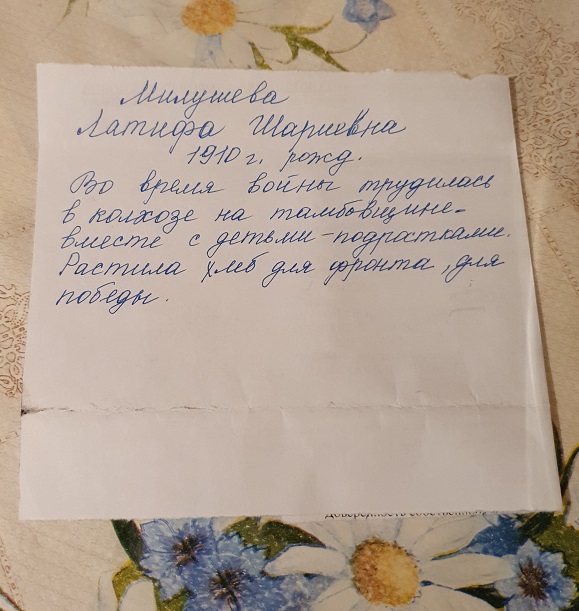 Милушева
Латифа Шариевна
1910 г. рожд.
Во время войны трудилась
в колхозе на тамбовщине-
вместе с детьми-подростками.
Растила хлеб для фронта, для
победы.
Доверенность собственни